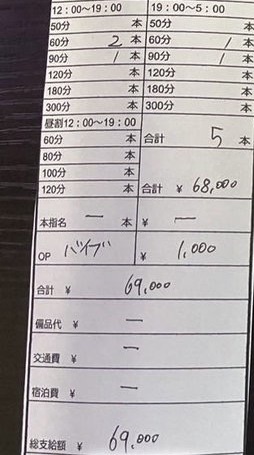 12:00〜19:00 19:00〜5:00
50分 本 50分
60分 2 本 60分 1 本
90分 1 本 90分 1 本
120分 本 120分 本
180分 本 180分 本
300分 本 300分 本
昼割12:00〜19:00
60分 本 合計 5 本
80分 本
100分 本
120分 本 合計 ¥ 68,000
本指名 ー 本 ¥ ー
OP バイブ ¥ 1,000
合計 ¥ 69,000
備品代 ¥ ー
交通費 ¥ ー
宿泊費 ¥ ー
総支給額 ¥ 69,000